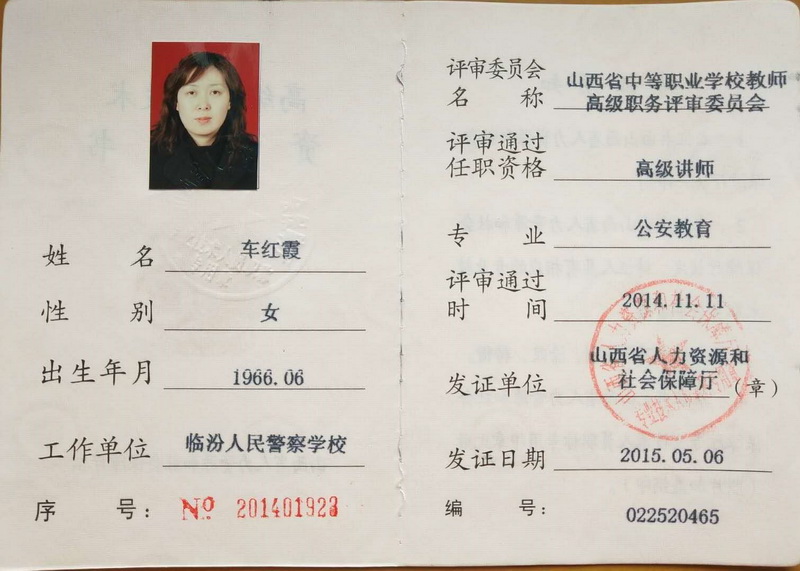 姓名 车红霞
性别 女
出生年月 1966.06
工作单位 临汾人民警察学校
序号: № 201401923
评审委员会
名称 山西省中等职业学校教师
高级职务评审委员会
评审通过
任职资格 高级讲师
专业 公安教育
评审通过
时间 2014.11.11
发证单位 山西省人力资源和
社会保障厅 (章)
发证日期 2015.05.06
编号: 022520465